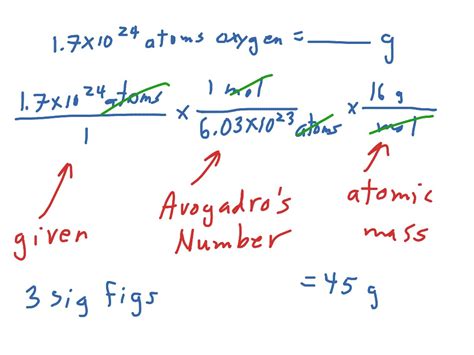 1.7×10²⁴ atoms oxygen = ____ g
1.7×10²⁴ atoms / 1 × 1 mol / 6.03×10²³ atoms × 16 g / mol
given
Avogadro's
Number
atomic
mass
3 sig figs
= 45 g